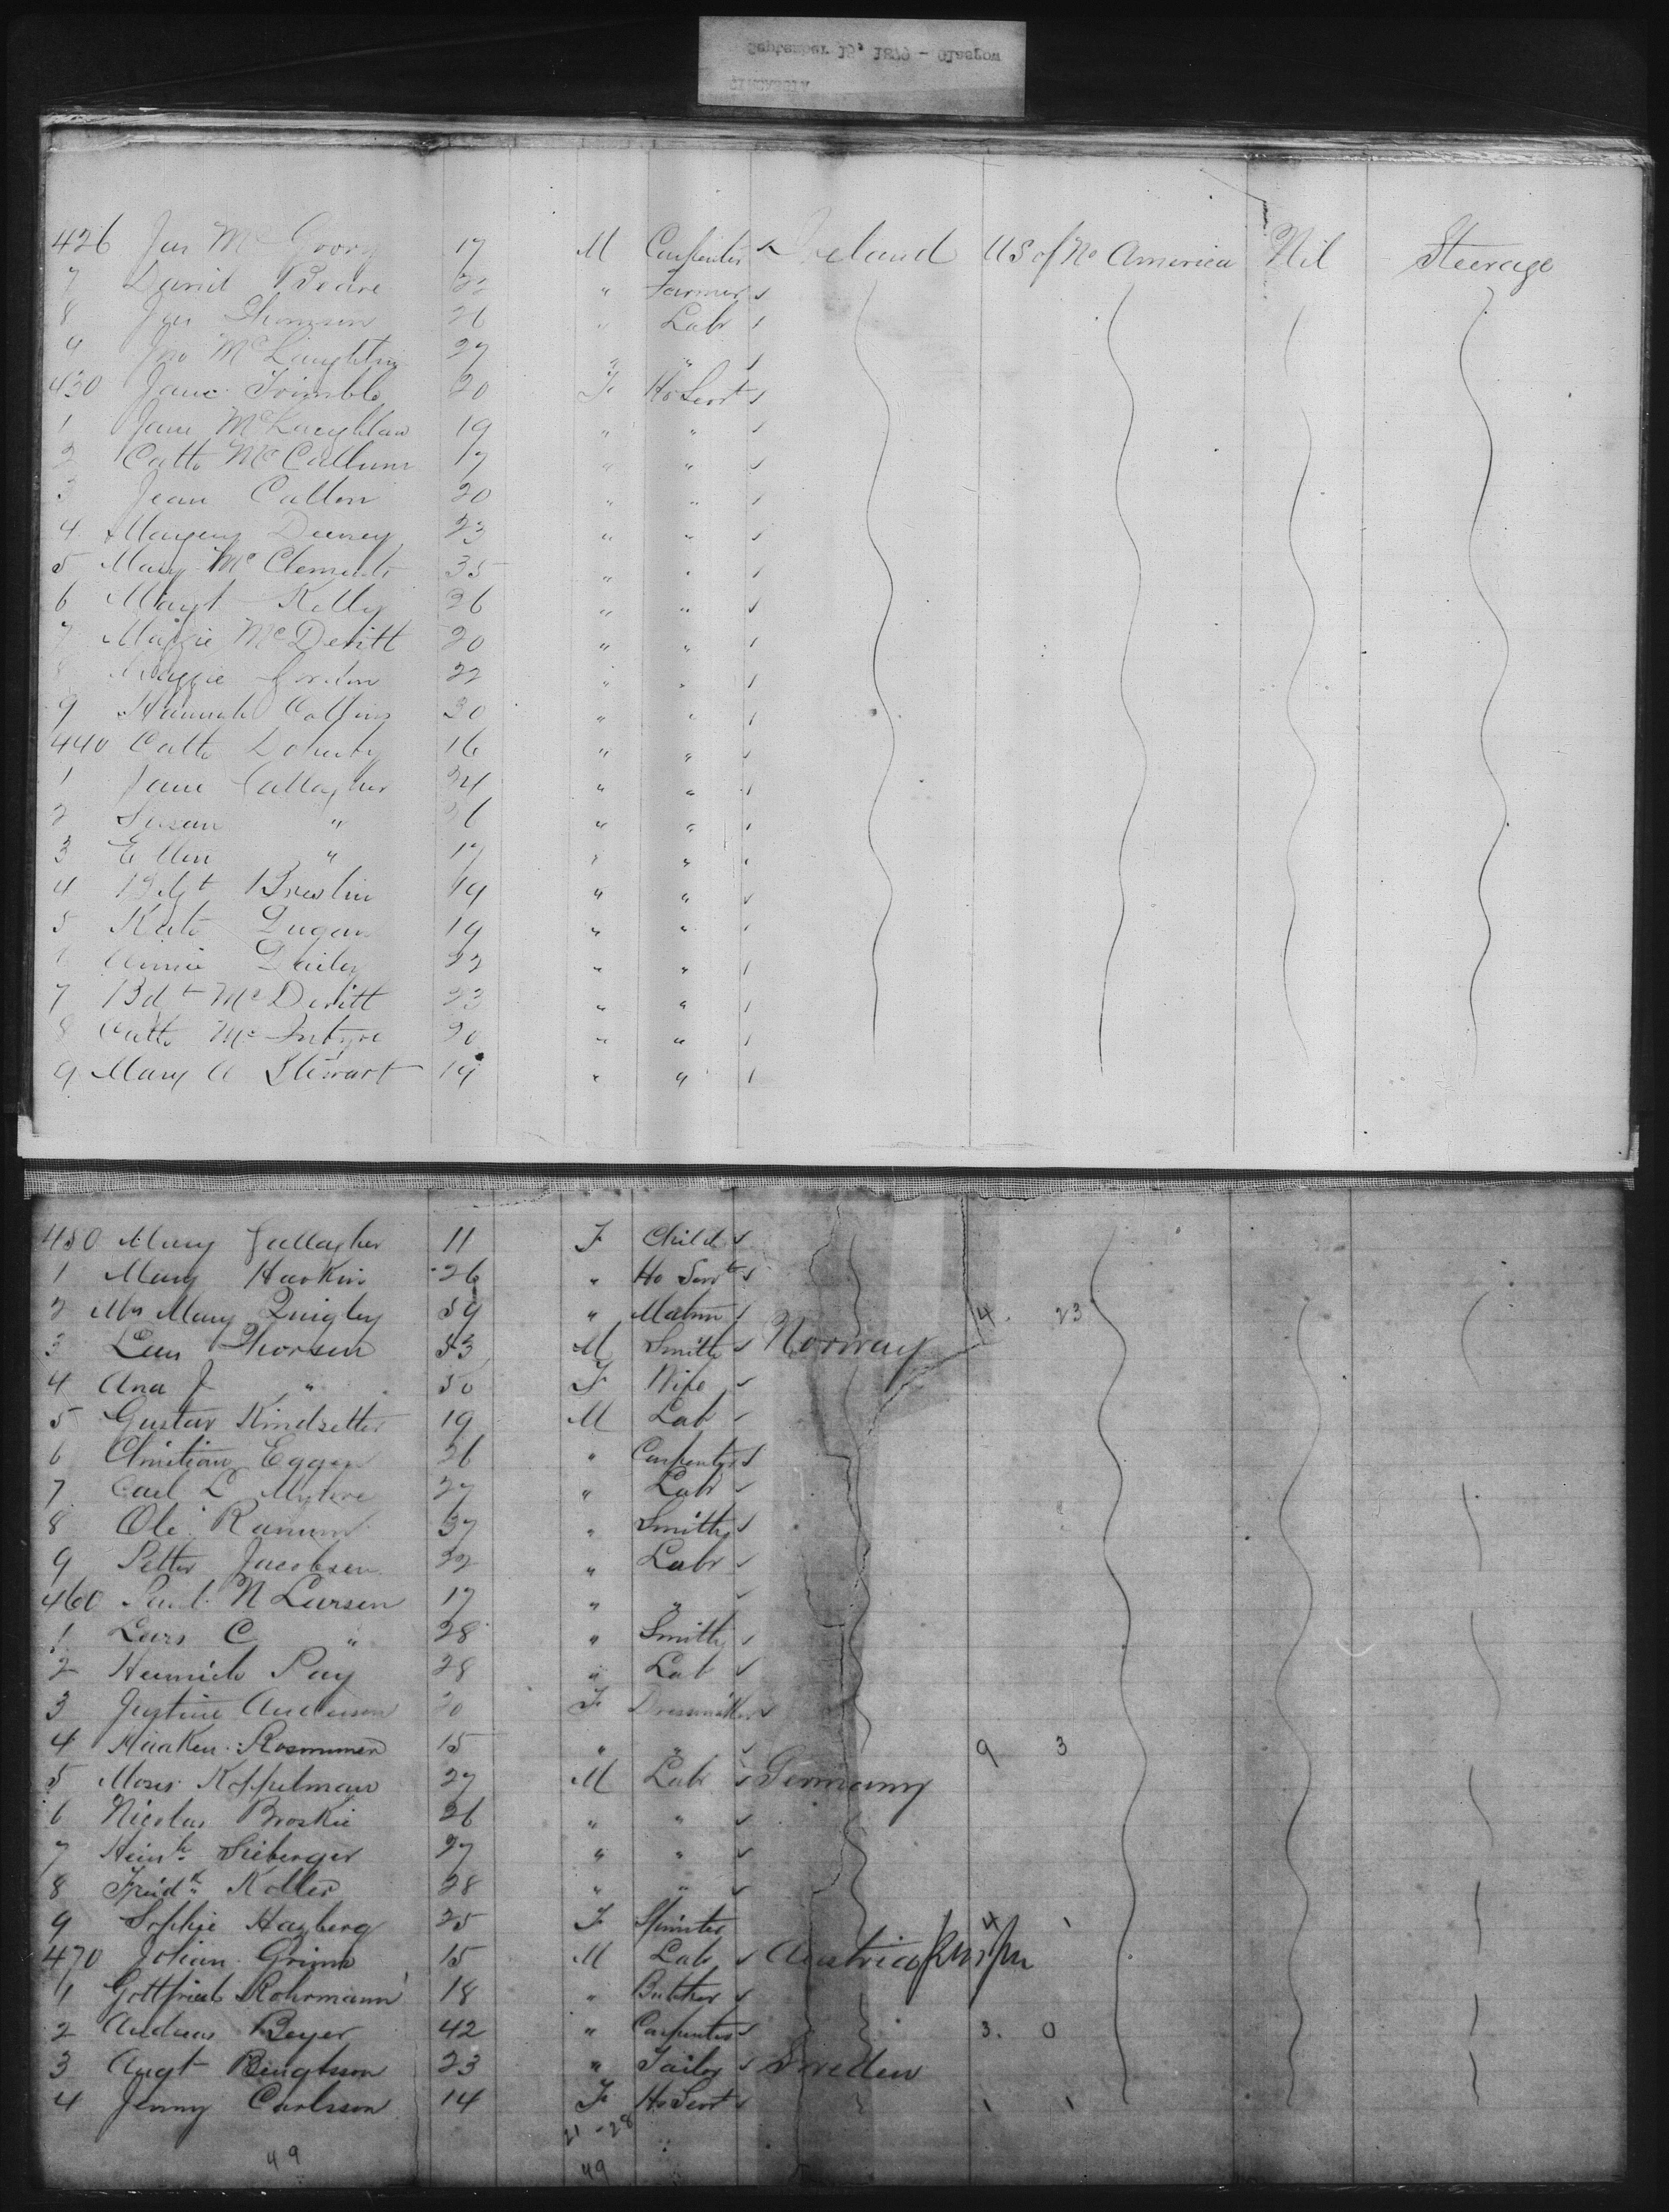 September 15, 1879 - Glasgow
426 Jas McGrory 17 M Carpenter Ireland US of No America Nil Steerage
7 David Beare 22 " Farmer
8 Jas Thomson 26 " Labr
9 Jno McLaughlin 27 " "
430 Jane Trimble 20 F Ho Servt
1 Jane McLaughlan 19 " "
2 Cathe McCallum 17 " "
3 Jean Calton 20 " "
4 Deeney 23 " "
5 Mary McClements 35 " "
6 Margt Kelly 26 " "
7 Maggie McDevitt 20 " "
8 Maggie Gordon 22 " "
9 Hannah Collins 30 " "
440 Cathe Doherty 16 " "
1 Jane Gallagher 24 " "
2 Susan " " "
3 Ellen " 17 " "
4 Bdgt Breslin 19 " "
5 Kate Dugan 19 " "
6 Annie Dailey 22 " "
7 Bdt McDevitt 23 " "
8 Cathe McIntyre 20 " "
9 Mary A Stewart 19 " "
450 Mary Gallagher 11 F Child
1 Mary Harkin 26 " Ho Servt
2 Mrs Mary Quigley 59 " Matron 4. 23
3 Lars Thorsen 53 M Smith Norway
4 Ana J " 50 F Wife
5 Gustav Kindsetter 19 M Lab
6 Christian Eggen 26 " Carpenter
7 Carl L 27 " Labr
8 Ole Ranum 37 " Smith
9 Petter Jacobsen 32 " Labr
460 Paul N Larsen 17 " "
1 Lars C " 28 " Smith
2 Heinrich Pay 28 " Lab
3 Justine Andersen 20 F Dressmaker
4 Rosmunen 15 " " 9 3
5 Moses Koppelman 27 M Labr Germany
6 Nicolai Broskie 26 " "
7 Heinh Sieberger 27 " "
8 Friedk Koller 28 " "
9 Sophie Hagberg 25 F Spinster 4 1
470 Johan Grimm 15 M Lab Austria
1 Gottfried Rohrmann 18 " Butcher
2 Andreas Beyer 42 " Carpenter 3. 0
3 Augt Bengtsson 23 " Tailor Sweden
4 Jenny Carlsson 14 F Ho Servt 1 1
21 - 28
49 49